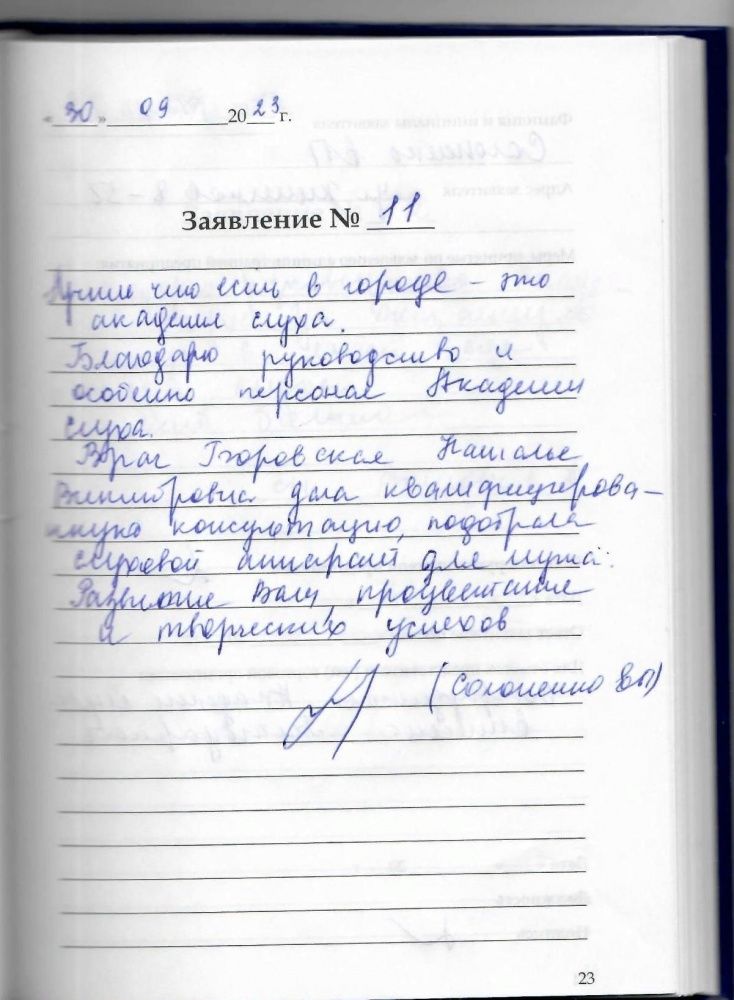 «30» 09 2023 г.
Заявление № 11
Лучшее что есть в городе – это
академия слуха.
Благодарю руководство и
особенно персонал Академии
слуха.
Врач Наталье
дала квалифициерова–
нную консультацию, подобрала
слуховой аппарат для мужа.
Развития Вам, процветания
и творческих успехов
(Солоненко ВП)
23